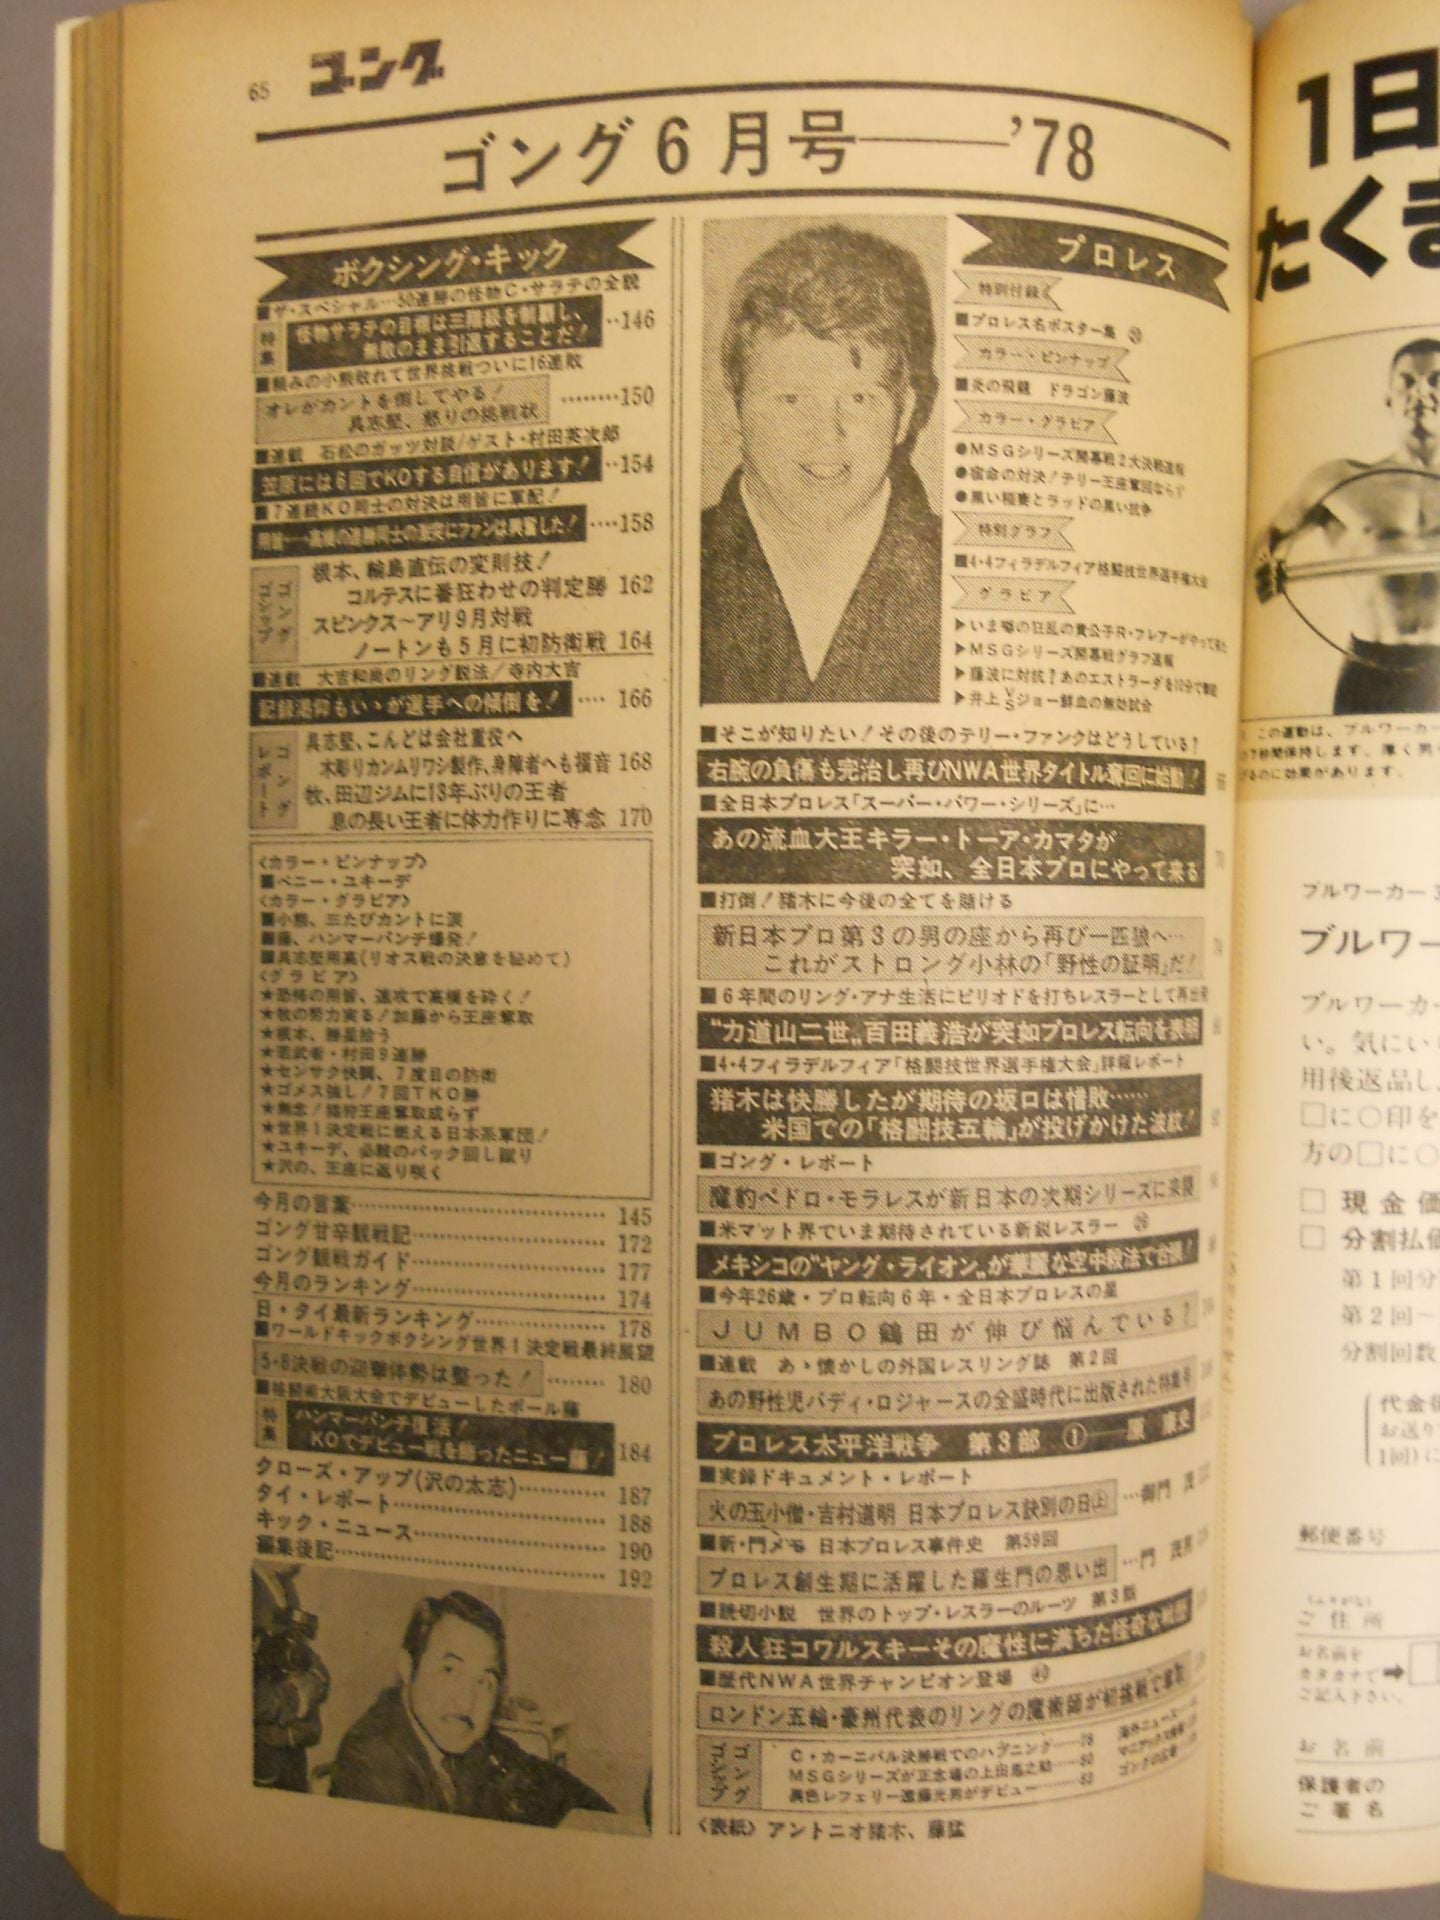 65
ゴング
ゴング6月号――’78
ボクシング・キック
■ザ・スペシャル…50連勝の怪物C・サラテの全貌
特集
怪物サラテの目標は三階級を制覇し、
無敗のまま引退することだ! ‥146
■頼みの小熊敗れて世界挑戦ついに16連敗
オレがカントを倒してやる!
具志堅、怒りの挑戦状 ………150
■連載 石松のガッツ対談/ゲスト・村田英次郎
笠原には6回でKOする自信があります! ‥154
■7連続KO同士の対決は用皆に軍配!
用皆……高橋の連勝同士の激突にファンは興奮した! ‥‥158
ゴングゴシップ
根本、輪島直伝の変則技!
コルテスに番狂わせの判定勝 162
スピンクス〜アリ9月対戦
ノートンも5月に初防衛戦 164
■連載 大吉和尚のリング説法/寺内大吉
記録渇仰もいゝが選手への傾倒を! ‥‥ 166
ゴングレポート
具志堅、こんどは会社重役へ
木彫りカンムリワシ製作、身障者へも福音 168
牧、田辺ジムに13年ぶりの王者
息の長い王者に体力作りに専念 170
〈カラー・ピンナップ〉
■ベニー・ユキーデ
〈カラー・グラビア〉
■小熊、三たびカントに涙
■藤、ハンマーパンチ爆発!
■具志堅用高(リオス戦の決意を秘めて)
〈グラビア〉
★恐怖の用皆、速攻で高橋を砕く!
★牧の努力実る!加藤から王座奪取
★根本、勝星拾う
★若武者・村田9連勝
★センサク快調、7度目の防衛
★ゴメス強し!7回TKO勝
★無念!猪狩王座奪取成らず
★世界1決定戦に燃える日本系軍団!
★ユキーデ、必殺のバック回し蹴り
★沢の、王座に返り咲く
今月の言葉……………………… 145
ゴング甘辛観戦記………………… 172
ゴング観戦ガイド………………… 177
今月のランキング………………… 174
日・タイ最新ランキング………… 178
■ワールドキックボクシング世界1決定戦最終展望
5・8決戦の迎撃体勢は整った! ……… 180
■格闘術大阪大会でデビューしたポール藤
特集
ハンマーパンチ復活!
KOでデビュー戦を飾ったニュー藤! 184
クローズ・アップ(沢の太志)………… 187
タイ・レポート……………………… 188
キック・ニュース…………………… 190
編集後記…………………………… 192
プロレス
特別付録
■プロレス名ポスター集
カラー・ピンナップ
■炎の飛龍 ドラゴン藤波
カラー・グラビア
●MSGシリーズ開幕戦2大決戦速報
●宿命の対決!テリー王座奪回ならず
●黒い稲妻とラッドの黒い抗争
特別グラフ
■4・4フィラデルフィア格闘技世界選手権大会
グラビア
▶いま噂の狂乱の貴公子R・フレアーがやって来た
▶MSGシリーズ開幕戦グラフ速報
▶藤波に対抗?あのエストラーダを10分で撃破
▶井上VSジョー鮮血の無効試合
■そこが知りたい!その後のテリー・ファンクはどうしている?
右腕の負傷も完治し再びNWA世界タイトル奪回に始動! 66
■全日本プロレス「スーパー・パワー・シリーズ」に…
あの流血大王キラー・トーア・カマタが
突如、全日本プロにやって来る
■打倒!猪木に今後の全てを賭ける
新日本プロ第3の男の座から再び一匹狼へ…
これがストロング小林の「野性の証明」だ!
■6年間のリング・アナ生活にピリオドを打ちレスラーとして再出発
“力道山二世„百田義浩が突如プロレス転向を表明
■4・4フィラデルフィア「格闘技世界選手権大会」詳報レポート
猪木は快勝したが期待の坂口は惜敗……
米国での「格闘技五輪」が投げかけた波紋!
■ゴング・レポート
魔豹ペドロ・モラレスが新日本の次期シリーズに来襲
■米マット界でいま期待されている新鋭レスラー
メキシコの“ヤング・ライオン„が華麗な空中殺法で台頭!
■今年26歳・プロ転向6年・全日本プロレスの星
JUMBO鶴田が伸び悩んでいる?
■連載 あゝ懐かしの外国レスリング誌 第2回
あの野性児バディ・ロジャースの全盛時代に出版された特集号
プロレス太平洋戦争 第3部 ①――原 康史
■実録ドキュメント・レポート
火の玉小僧・吉村道明 日本プロレス訣別の日㊤ …御門 茂
■新・門メモ 日本プロレス事件史 第59回
プロレス創生期に活躍した羅生門の思い出 …門 茂男
■読切小説 世界のトップ・レスラーのルーツ 第3話
殺人狂コワルスキーその魔性に満ちた怪奇な
■歴代NWA世界チャンピオン登場
ロンドン五輪・豪州代表のリングの魔術師が初挑戦で奪取
ゴングゴシップ
C・カーニバル決勝戦でのハプニング……78
MSGシリーズが正念場の上田馬之助……80
異色レフェリー遠藤光男がデビュー………83
海外ニュース
ゴングの広場
〈表紙〉アントニオ猪木、藤猛
1日
たくま
この運動は、ブルワーカー
7秒間保持します。厚く男
るのに効果があります。
ブルワーカー3
ブルワー
ブルワーカー
い。気にい
用後返品し
□に○印を
方の□に○
□ 現金価
□ 分割払価
第1回分
第2回〜
分割回数
代金後
お送り
1回)に
郵便番号
(ふりがな)
ご住所
お名前を
カタカナで➡
ご記入下さい。
お名前
保護者の
ご署名